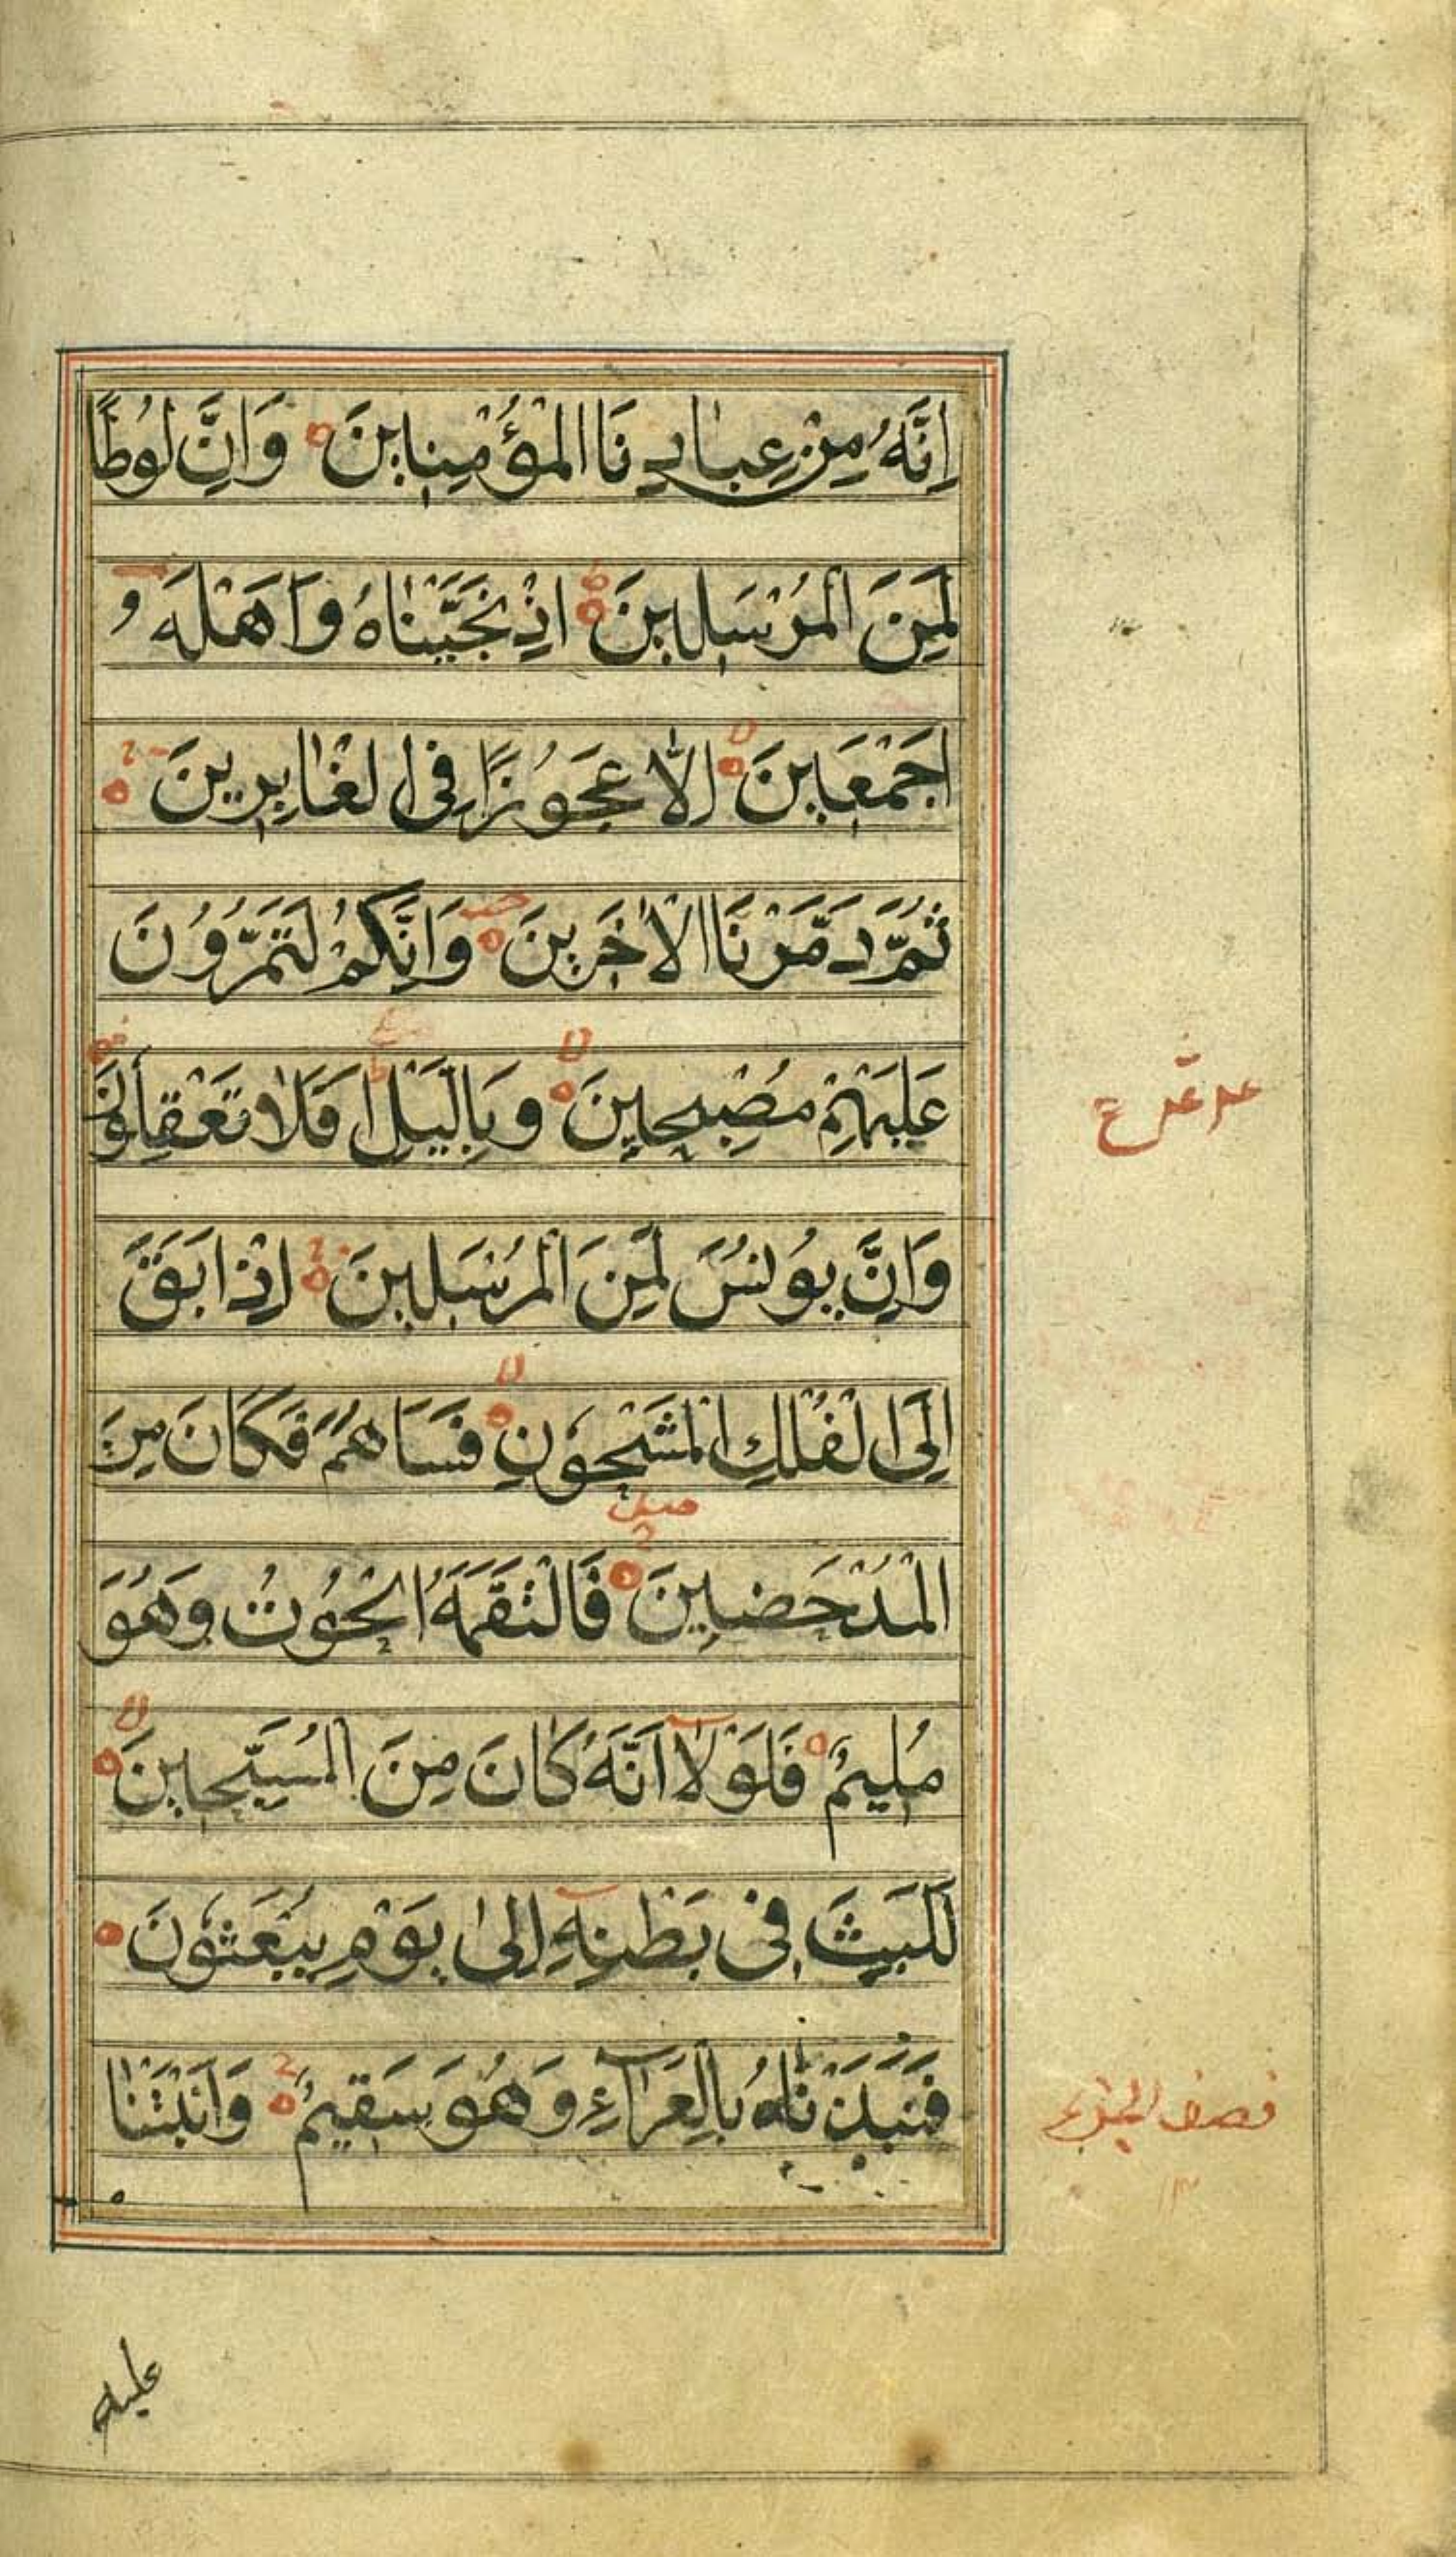 اِنَّهُ مِنْ عِبَادِنَا الْمُؤْمِنِينَ وَاِنَّ لُوطًا
لَمِنَ الْمُرْسَلِينَ اِذْ نَجَّيْنَاهُ وَاَهْلَهُ
اَجْمَعِينَ اِلَّا عَجُوزًا فِي الْغَابِرِينَ
ثُمَّ دَمَّرْنَا الْاٰخَرِينَ وَاِنَّكُمْ لَتَمُرُّونَ
عَلَيْهِمْ مُصْبِحِينَ وَبِالَّيْلِ اَفَلَا تَعْقِلُونَ
وَاِنَّ يُونُسَ لَمِنَ الْمُرْسَلِينَ اِذْ اَبَقَ
اِلَى الْفُلْكِ الْمَشْحُونِ فَسَاهَمَ فَكَانَ مِنَ
الْمُدْحَضِينَ فَالْتَقَمَهُ الْحُوتُ وَهُوَ
مُلِيمٌ فَلَوْلَا اَنَّهُ كَانَ مِنَ الْمُسَبِّحِينَ
لَلَبِثَ فِي بَطْنِهِ اِلٰى يَوْمِ يُبْعَثُونَ
فَنَبَذْنَاهُ بِالْعَرَاءِ وَهُوَ سَقِيمٌ وَاَنْبَتْنَا
عليه